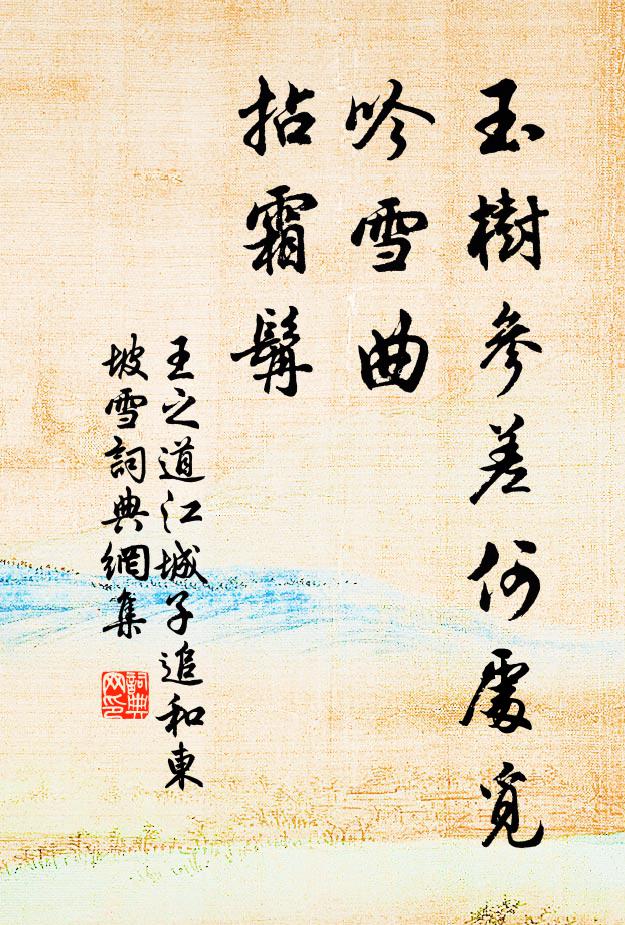 玉樹參差何處覓
吟雪曲
拈霜髯
王之道江城子追和東
坡雪詞典網集
詞典
网印